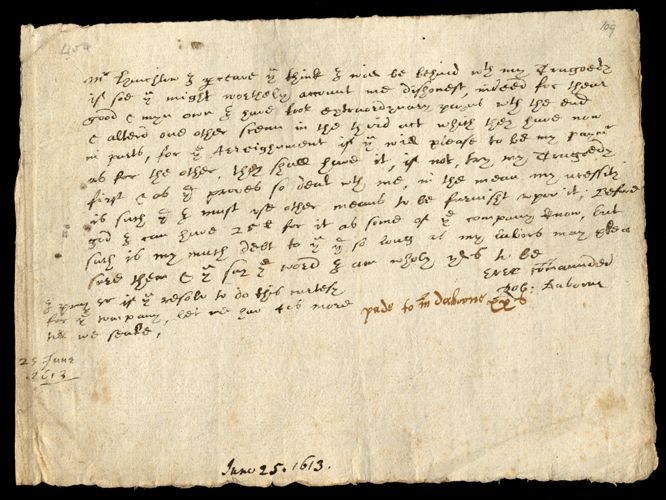 109
Mr Hinchlow I perceave yu think I will be behind wth my Tragoedy
if soe yu might worthely account me dishonest, indeed for thear
good & myn own I have took extraordynary payns wth the end
& altered one other scean in the third act which they have now
in parts, for ye Arreighnment if yu will please to be my paymr
as for the other, they shall have it, if not, try my Tragoedy
first & as yt proves so deal wth me, in the mean my necessity
is such yt I must use other means to be furnisht upon it, before
god I can have 25l for it as some of ye company know, but
such is my much debt to yu yt so long as my labors may pleas
them & yu say ye word I am wholy yrs to be
ever comaunded
Rob: Daborne
I pray sr if yu resolv to do this curtesy
for ye company, let me hav 20s more
till we seale,
pade to mr daborne xxs
25 June
1613
June 25. 1613.